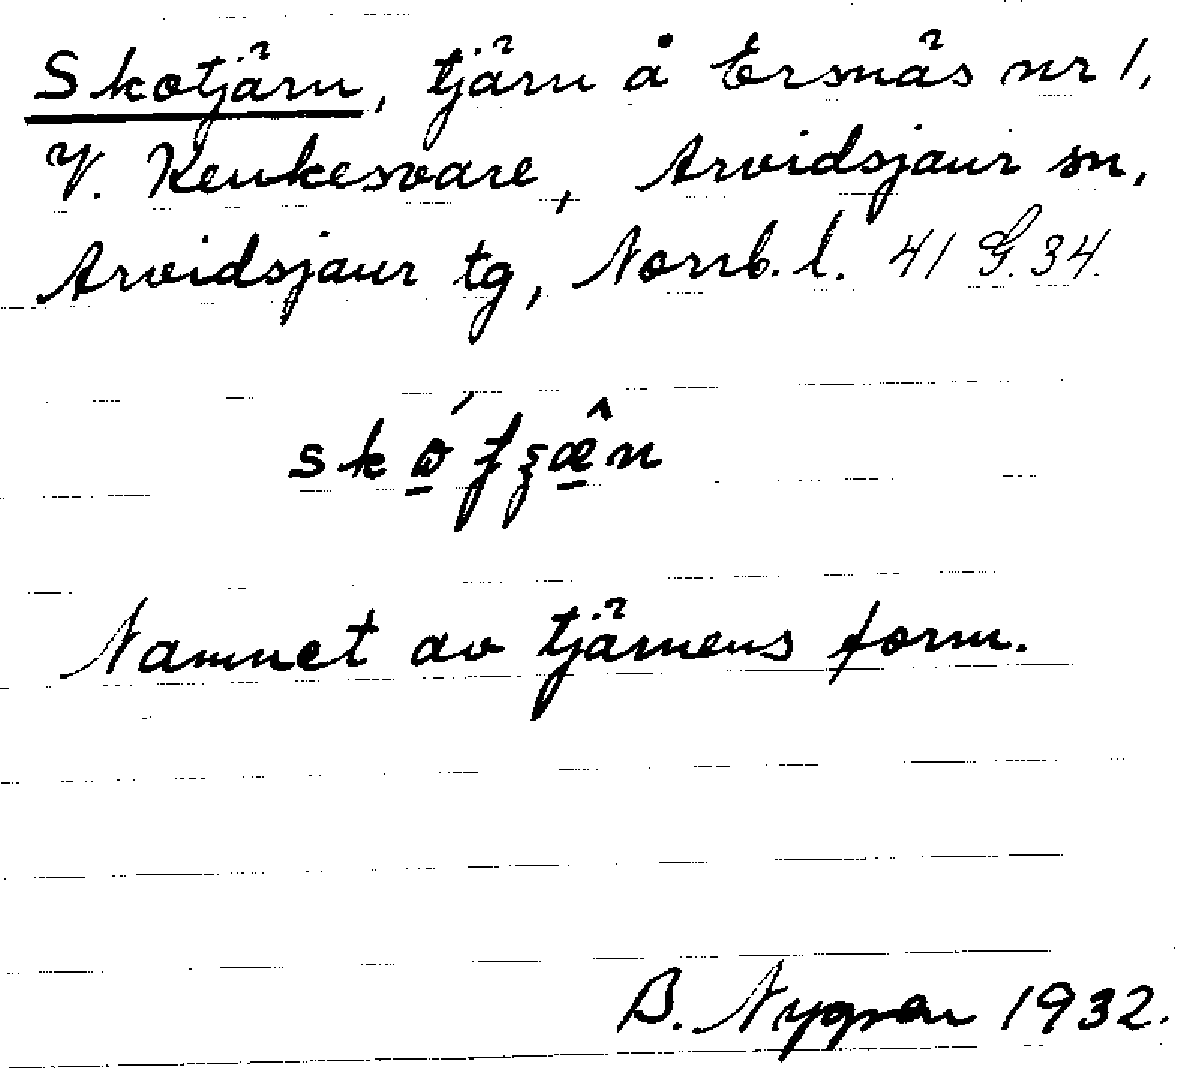 Skotjärn, tjärn å Ersnäs nr 1,
V. Keukesvare, Arvidsjaur sn,
Arvidsjaur tg, Norrb. l. 41 G. 34.
Namnet av tjärnens form.
B. Nygren 1932.